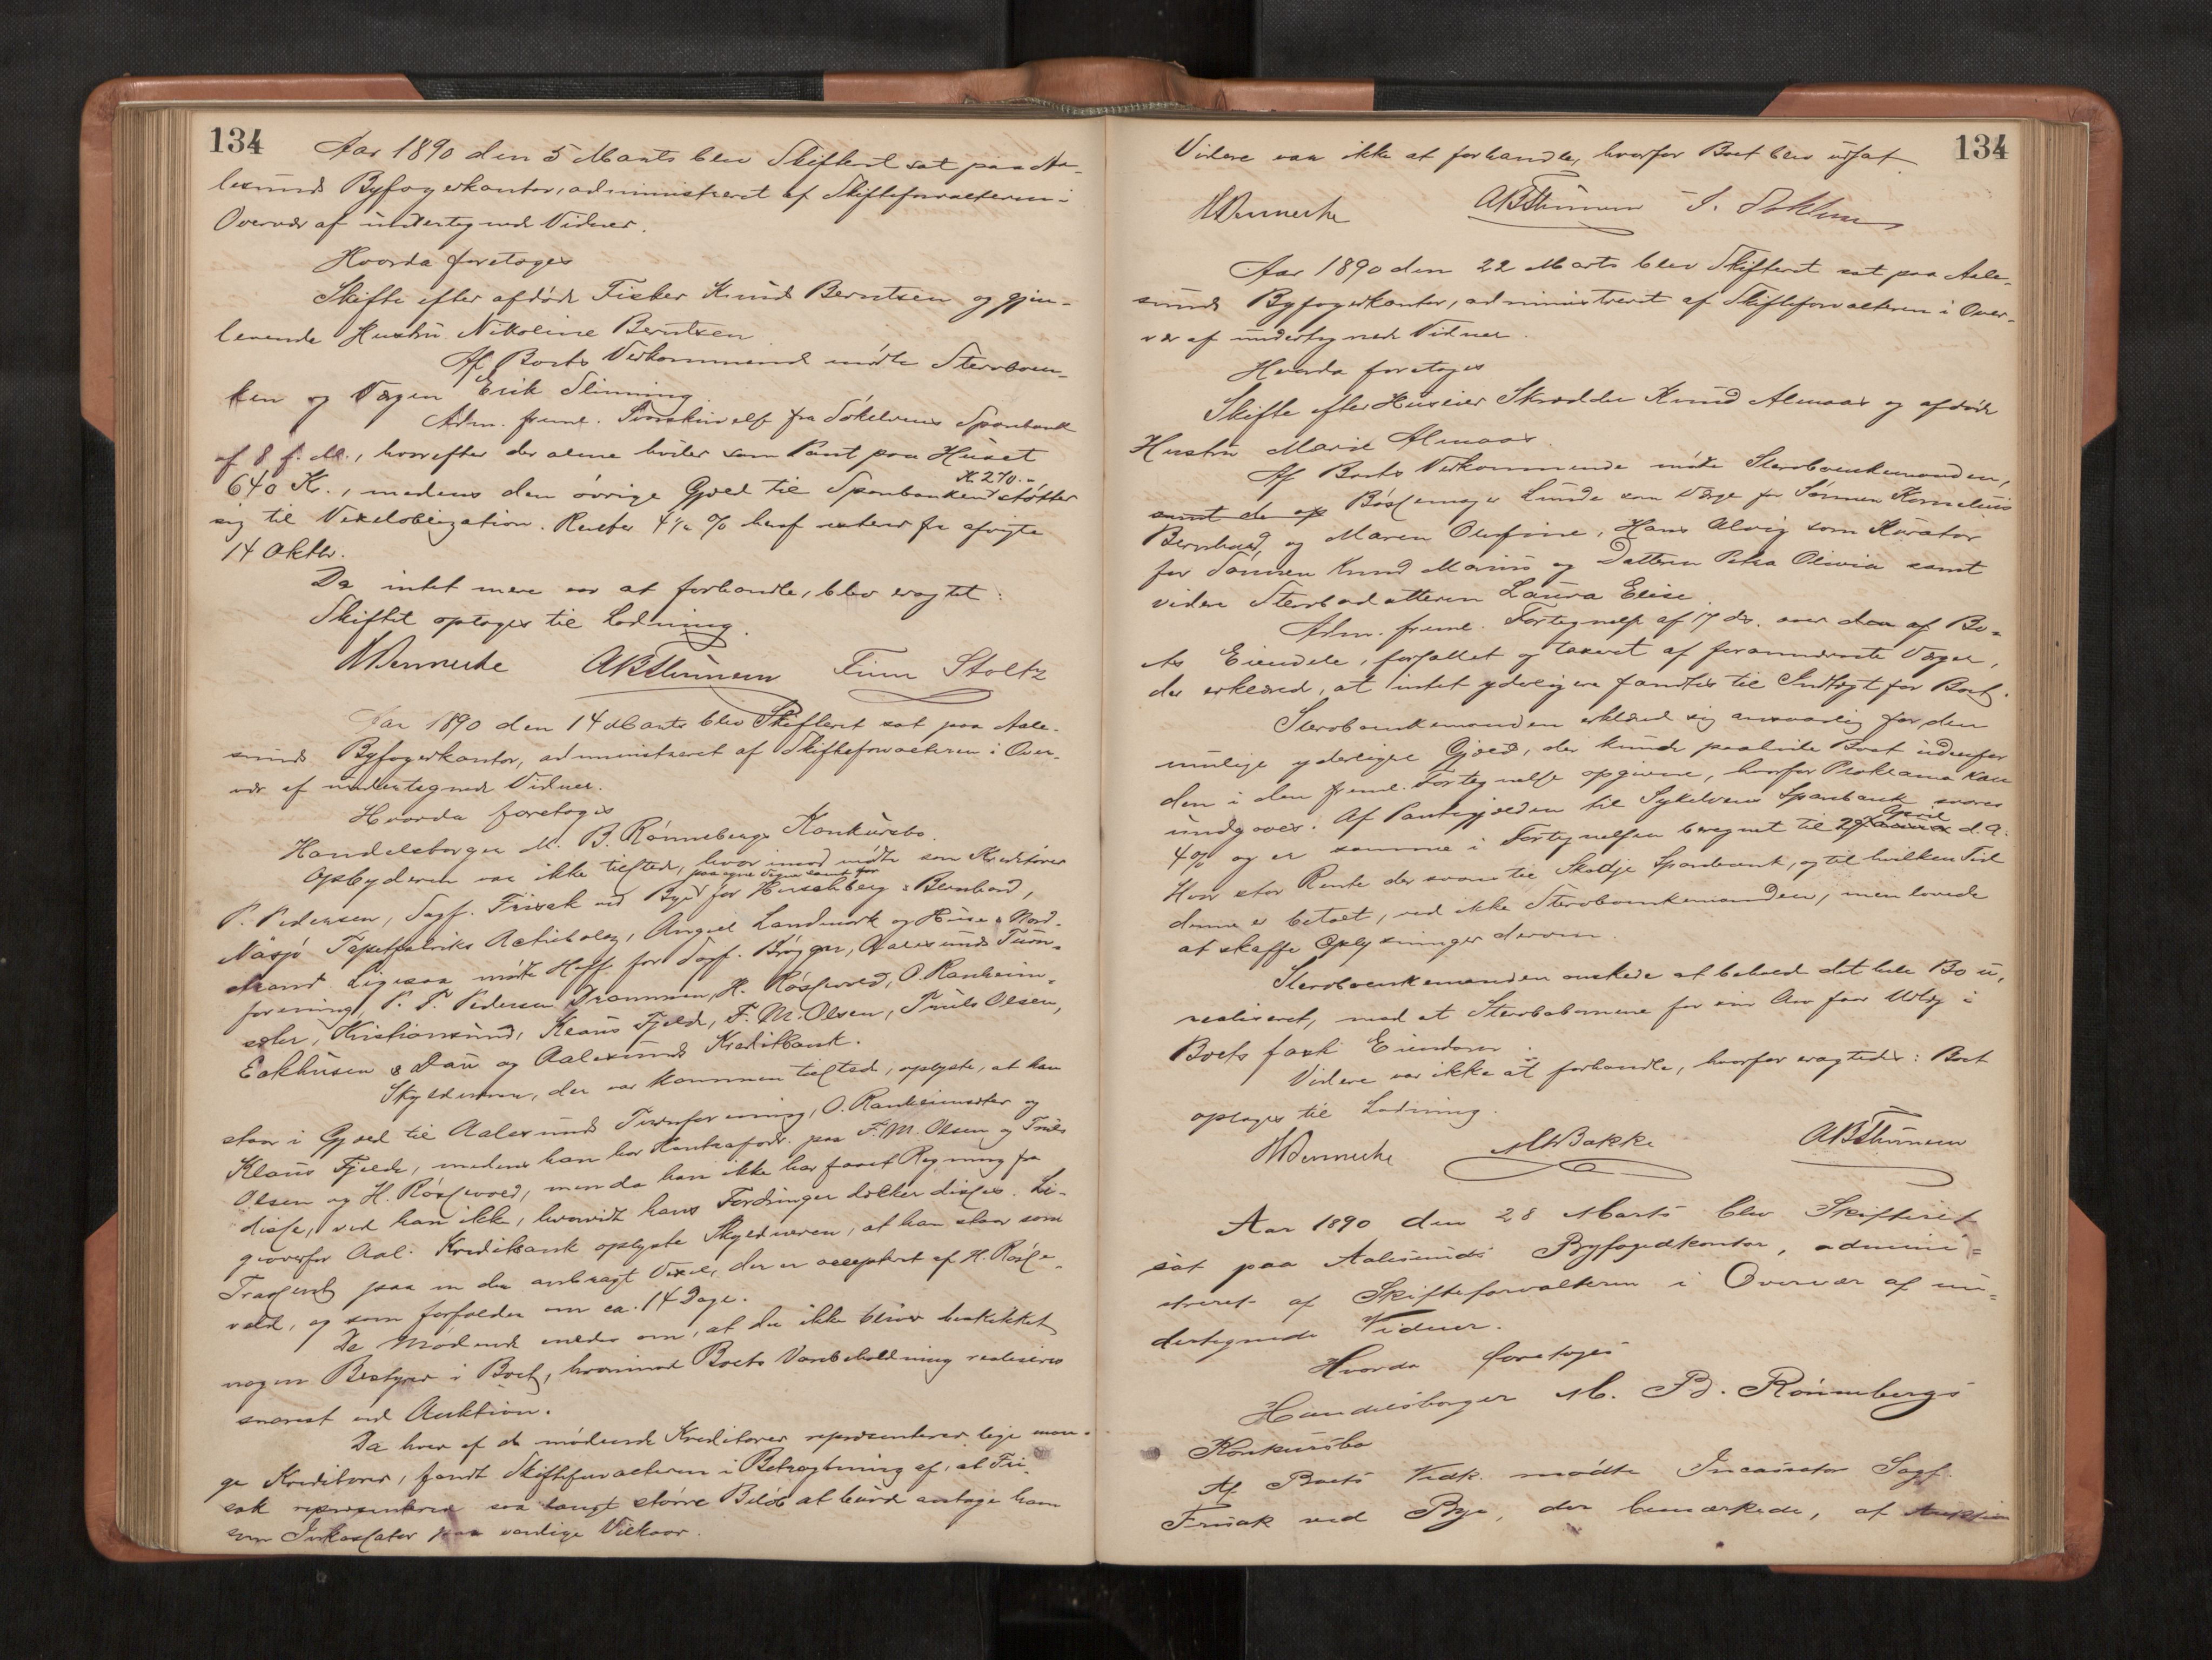 134
Aar 1890 den 5 Marts blev Skifteret sat paa Aa-
lesunds Byfogedkontor, administreret af Skifteforvalteren i
Overvær af undertegnede Vidner.
Hvorda foretoges
Skifte efter afdøde Fisker Knud Berntsen og gjen-
levende Hustru Nikoline Berntsen.
Af Boets Vedkommende mødte Stervboen-
ken og Vergen Erik Slinning.
Adm. freml. Tinskrivelse fra Søkelvens Sparebank
af 8 f. M., hvorefter der alene hviler som Pant paa Huset
640 K., medens den øvrige Gjæld til Sparebanken K. 270.- støtter
sig til Vexelobligation. Renter 4½ % heraf resterer fra afvigte
14 Oktbr.
Da intet mere var at forhandle, blev eragtet:
Skiftet optages til Lodning.
NDennecke ABThunem Finn Stoltz
Aar 1890 den 14 Marts blev Skifteret sat paa Aale-
sunds Byfogedkontor, administreret af Skifteforvalteren i Over-
vær af undertegnede Vidner.
Hvorda foretoges
Handelsborger M. B. Rønnebergs Konkursbo.
Opbyderen var ikke tilstede, hvorimod mødte som Kreditorer
paa egne Vegne samt for
P. Pedersen, Sagf. Frisak ved Bye for Hirschberg & Bernhard,
Nasjø Tapetfabriks Actiebolag, Angell Landmark og Huse & Nord-
strand. Ligesaa mødte Hoff. for Sagf. Brøgger, Aalesunds Turn-
forening, P. T. Pedersen Drammen, H. Røssevold, O. Ranheim-
sæter, Kristiansund, Klaus Fjelde, F. M. Olsen, Truls Olsen,
Eekhusen & Dau og Aalesunds Kreditbank.
Skyldneren, der var kommen tilstede, oplyste, at han
staar i Gjæld til Aalesunds Turnforening, O. Ranheimsæter og
Klaus Fjelde, medens han har Kontrafordr. paa F. M. Olsen og Truls
Olsen og H. Røssevold, men da han ikke har faaet Regning fra
disse, ved han ikke, hvorvidt hans Fordringer dækker disses. Li-
geoverfor Aal. Kreditbank oplyste Skyldneren, at han staar som
Trassent paa en der anbragt Vexel, der er accepteret af H. Røsse-
vold, og som forfalder om ca. 14 Dage.
De Mødende enedes om, at der ikke bliver beskikket
nogen Bestyrer i Boet, hvorimod Boets Varebeholdning realiseres
snarest ved Auktion.
Da hver af de mødende Kreditorer repræsenterer lige man-
ge Kreditorer, fandt Skifteforvalteren i Betragtning af, at Fri-
sak repræsenterer saa langt større Beløb at burde antage ham
som Inkassator paa vanlige Vilkaar.
134
Videre var ikke at forhandle, hvorfor Boet blev udsat.
NDennecke ABThunem
Aar 1890 den 22 Marts blev Skifteret sat paa Aale-
sunds Byfogedkontor, administreret af Skifteforvalteren i Over-
vær af undertegnede Vidner.
Hvorda foretoges
Skifte efter Huseier Skrædder Knud Almaas og afdøde
Hustru Marie Almaas.
Af Boets Vedkommende mødte Stervboenkemanden,
samt de op Bøssemager Lunde som Verge for Sønnen Kornelius
Bernhard og Maren Olufine, Hans Alvig som Kurator
for Sønnen Knud Marius og Datteren Petra Olivia samt
videre Stervbodatteren Laura Elise.
Adm. freml. Fortegnelse af 17 ds. over den af Bo-
ets Eiendele, forfattet og taxeret af forannævnte Verger,
der erklæred, at intet yderligere fandtes til Indtægt for Boet.
Stervboenkemanden erklæred sig ansvarlig for den
mulige yderligere Gjæld, der kunde paahvile Boet udenfor
den i den freml. Fortegnelse opgivne, hvorfor Proklama kan
undgaaes. Af Pantegjælden til Sykelvens Sparebank svares
4% og er samme i Fortegnelsen beregnet til 29 April d. A.
Hvor stor Rente der svares til Skodje Sparebank, og til hvilken Tid
denne er betalt, ved ikke Stervboenkemanden, men lovede
at skaffe Oplysninger derom.
Stervboenkemanden ønskede at beholde det hele Bo u-
realiseret, mod at Stervbobørnene for sin Arv faar Udlæg i
Boets faste Eiendom.
Videre var ikke at forhandle, hvorfor eragtedes: Boet
optages til Lodning.
NDennecke MWBakke ABThunem
Aar 1890 den 28 Marts blev Skifteret
sat paa Aalesunds Byfogedkontor, admini-
streret af Skifteforvalteren i Overvær af un-
dertegnede Vidner.
Hvorda foretoges
Handelsborger M. B. Rønnebergs
Konkursbo
Af Boets Vedk. mødte Incassator Sagf.
Frisak ved Bye, der bemærkede, at Auktion